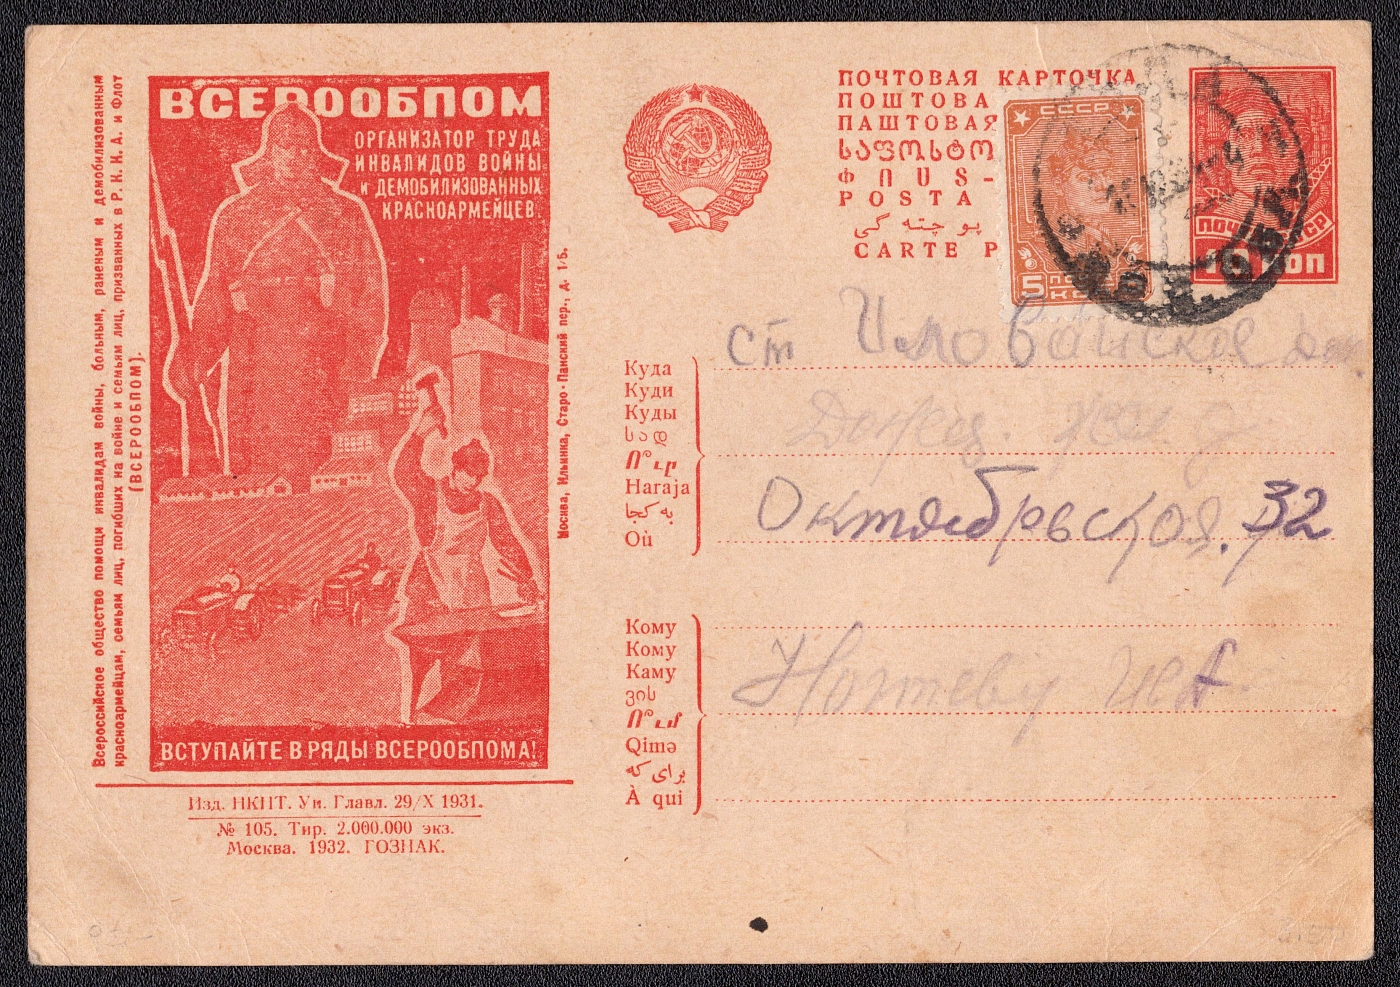 Всероссийское общество помощи инвалидам войны, больным, раненым и демобилизованным
красноармейцам, семьям лиц, погибших на войне и семьям лиц, призванных в Р. К. К. А. и Флот
(ВСЕРООБПОМ).
ВСЕРООБПОМ
ОРГАНИЗАТОР ТРУДА
ИНВАЛИДОВ ВОЙНЫ
И ДЕМОБИЛИЗОВАННЫХ
КРАСНОАРМЕЙЦЕВ.
ВСТУПАЙТЕ В РЯДЫ ВСЕРООБПОМА!
Москва, Ильинка, Старо-Панский пер., д. 1/5.
Изд. НКПТ. Уп. Главл. 29/X 1931.
№ 105. Тир. 2.000.000 экз.
Москва. 1932. ГОЗНАК.
ПОЧТОВАЯ КАРТОЧКА
ПОШТОВА
ПАШТОВАЯ
ՓՈՍՏ-
POSTA
پوچته گی
CARTE P
СССР
5
10 КОП
Куда
Куди
Куды
სად
Ո՞ւր
Haraja
به کجا
Où
ст Иловайская
Октябрьская. 32
Кому
Кому
Каму
ვის
Ո՞ւմ
Qimə
برای که
À qui